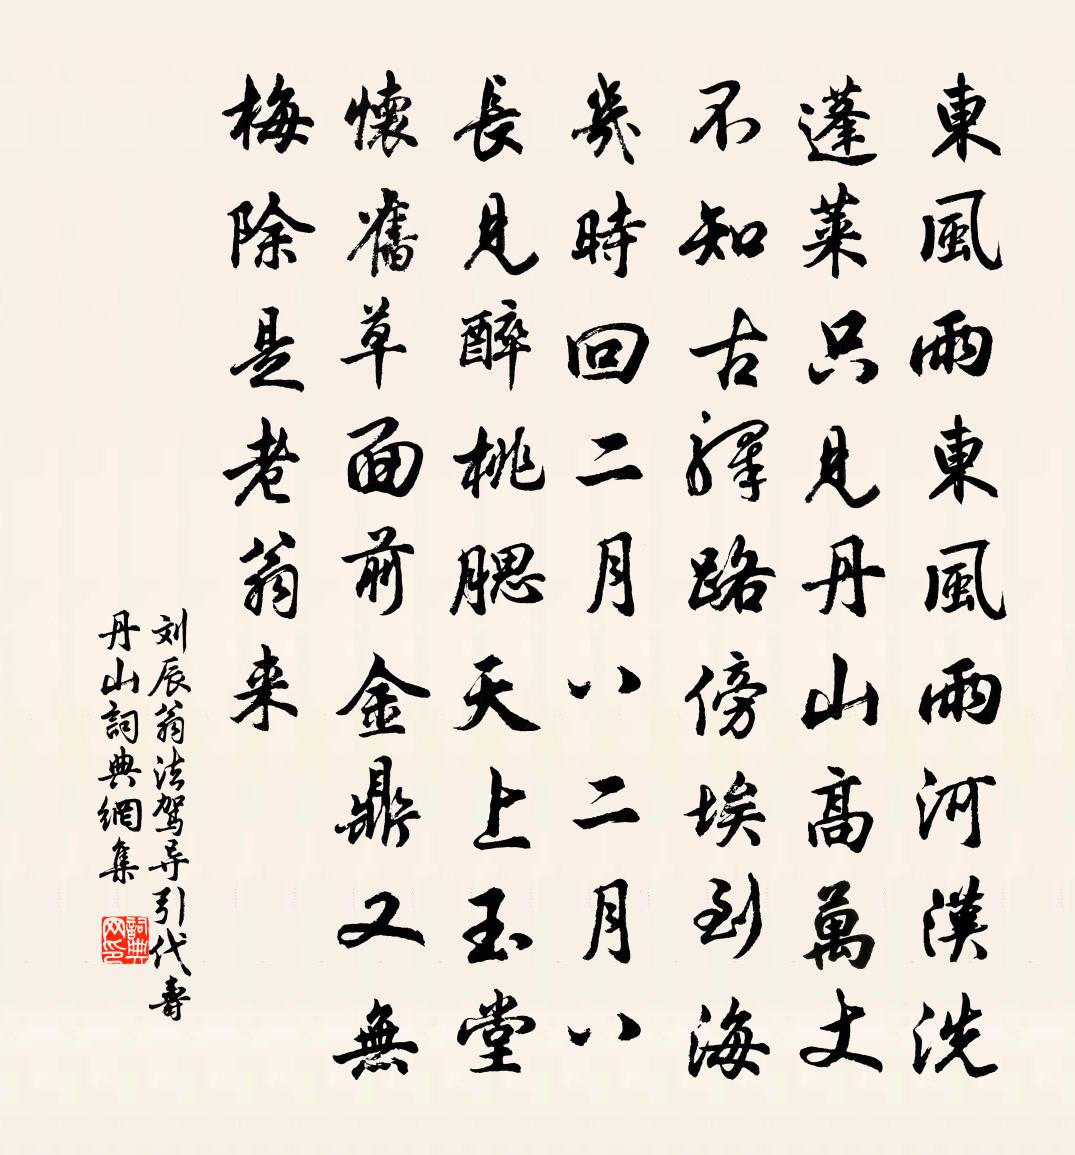 東風雨東風雨河漢洗
蓬萊只見丹山高萬丈
不知古驛路傍埃到海
幾時回二月八二月八
長見醉桃腮天上玉堂
懷舊草面前金鼎又無
梅除是老翁来
刘辰翁法驾导引代壽
丹山詞典網集
詞典网印